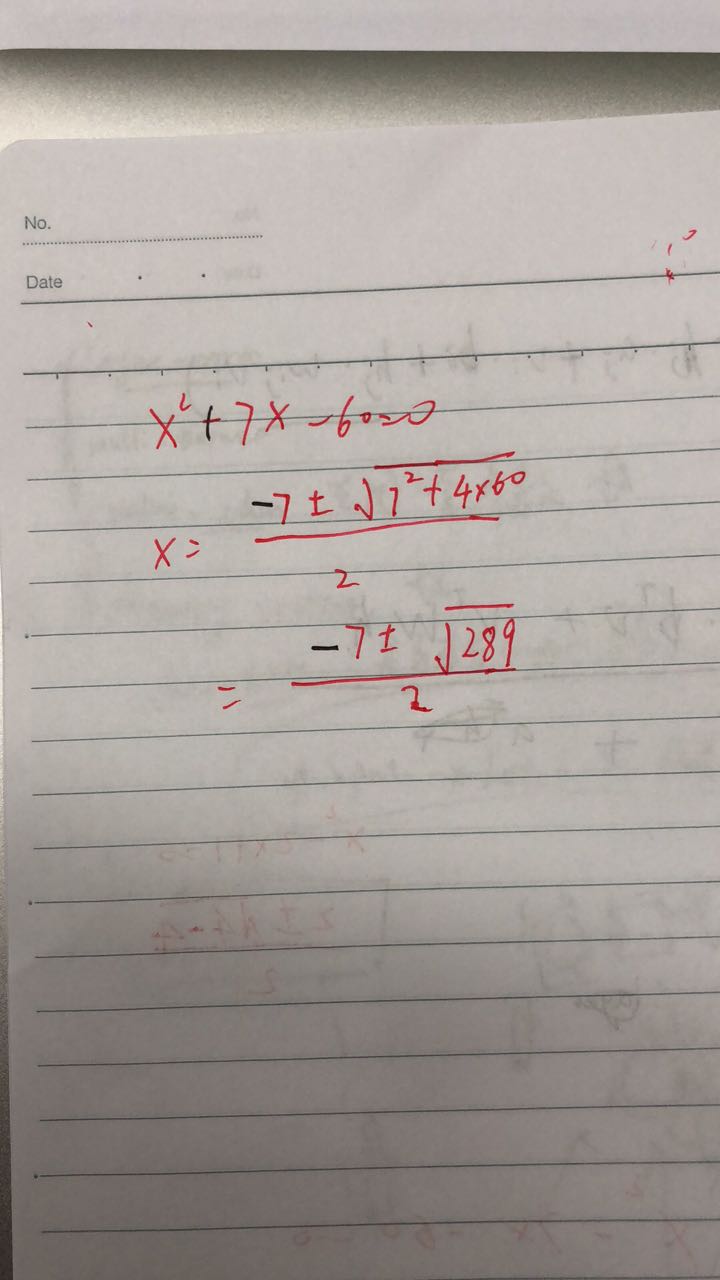 No.
Date
x² + 7x - 60 = 0
x = (-7 ± √(7² + 4×60)) / 2
= (-7 ± √289) / 2